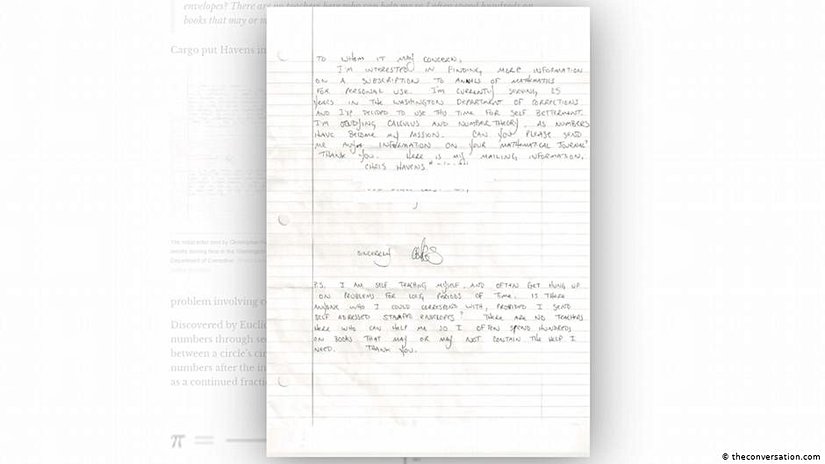 envelopes? There are no teachers here who can help me so I often spend hundreds on
books that may or m
Cargo put Havens in
TO WHOM IT MAY CONCERN,
I'M INTERESTED IN FINDING MORE INFORMATION
ON A SUBSCRIPTION TO ANNALS OF MATHEMATICS
FOR PERSONAL USE. I'M CURRENTLY SERVING 25
YEARS IN THE WASHINGTON DEPARTMENT OF CORRECTIONS
AND I'VE DECIDED TO USE THIS TIME FOR SELF BETTERMENT.
I'M STUDYING CALCULUS AND NUMBER THEORY, AS NUMBERS
HAVE BECOME MY MISSION. CAN YOU PLEASE SEND
ME ANY INFORMATION ON YOUR MATHEMATICAL JOURNAL?
THANK YOU. HERE IS MY MAILING INFORMATION.
CHRIS HAVENS
SINCERELY
P.S. I AM SELF TEACHING MYSELF, AND OFTEN GET HUNG UP
ON PROBLEMS FOR LONG PERIODS OF TIME. IS THERE
ANYONE WHO I COULD CORRESPOND WITH, PROVIDED I SEND
SELF ADRESSED STAMPED ENVELOPES? THERE ARE NO TEACHERS
HERE WHO CAN HELP ME SO I OFTEN SPEND HUNDREDS
ON BOOKS THAT MAY OR MAY NOT CONTAIN THE HELP I
NEED. THANK YOU.
problem involving c
Discovered by Euclid
numbers through se
between a circle's cir
numbers after the in
as a continued fractio
π =
© theconversation.com